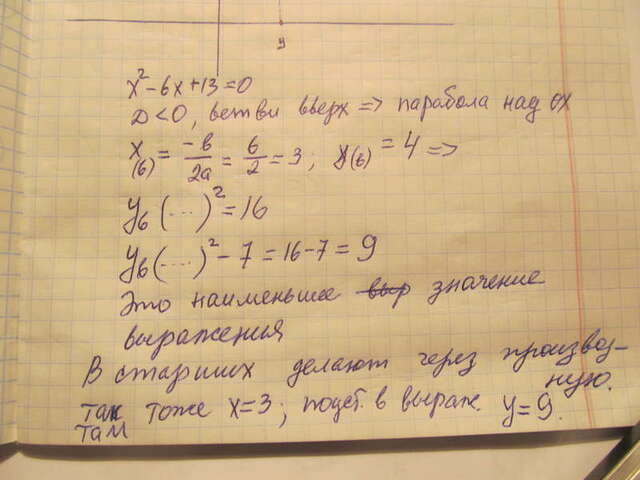 y
x² - 6x + 13 = 0
D < 0, ветви вверх => парабола над ox
x(в) = -b/2a = 6/2 = 3; y(в) = 4 =>
yв (....)² = 16
yв (....)² - 7 = 16 - 7 = 9
Это наименьшее выр значение
выражения
В старших делают через производ-
ную.
так тоже x = 3; подст. в выраж. y = 9.
там